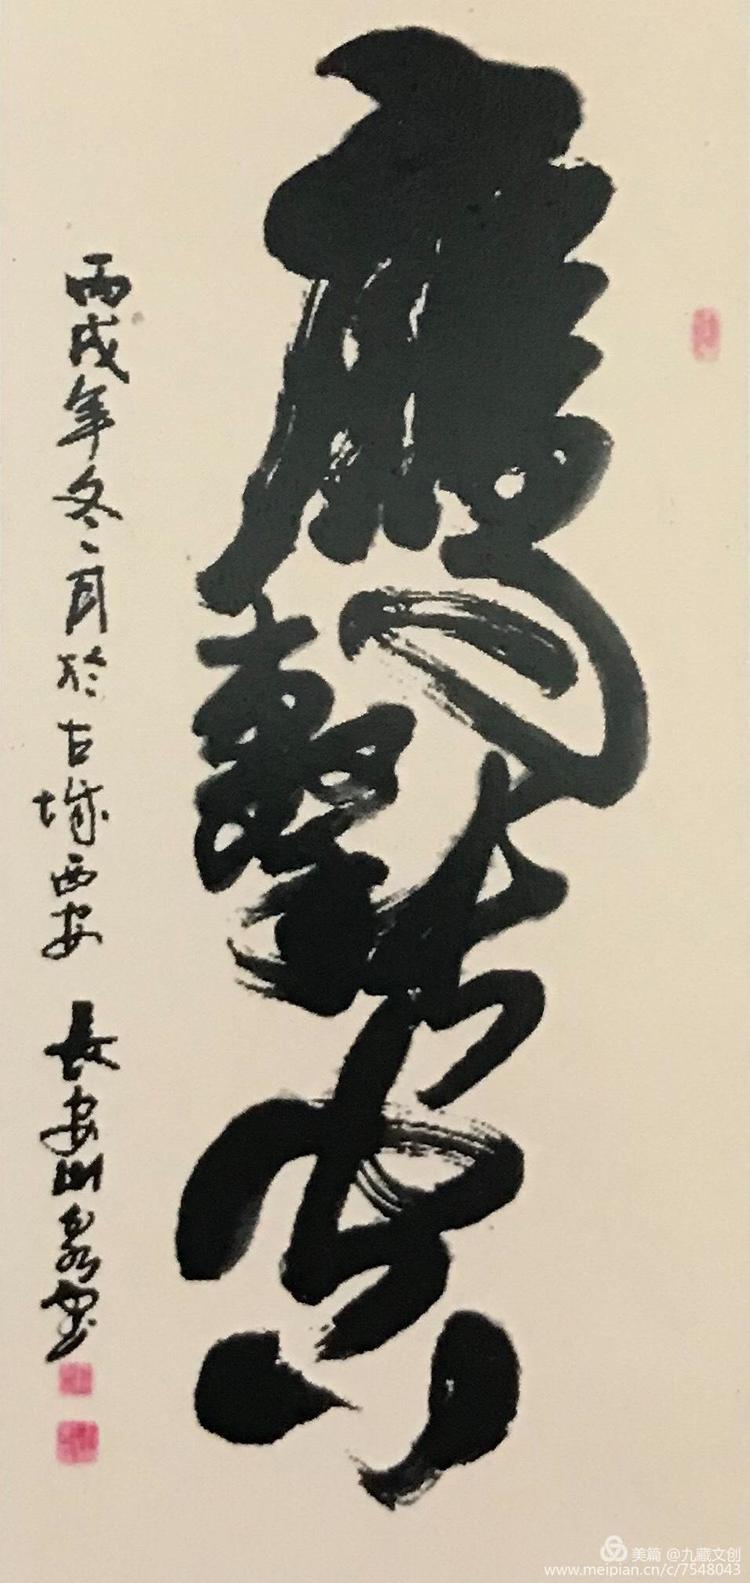 鹰击长空
丙戌年冬月於古城西安 长安山泉书
美篇 @九藏文创
www.meipian.cn/c/7548043